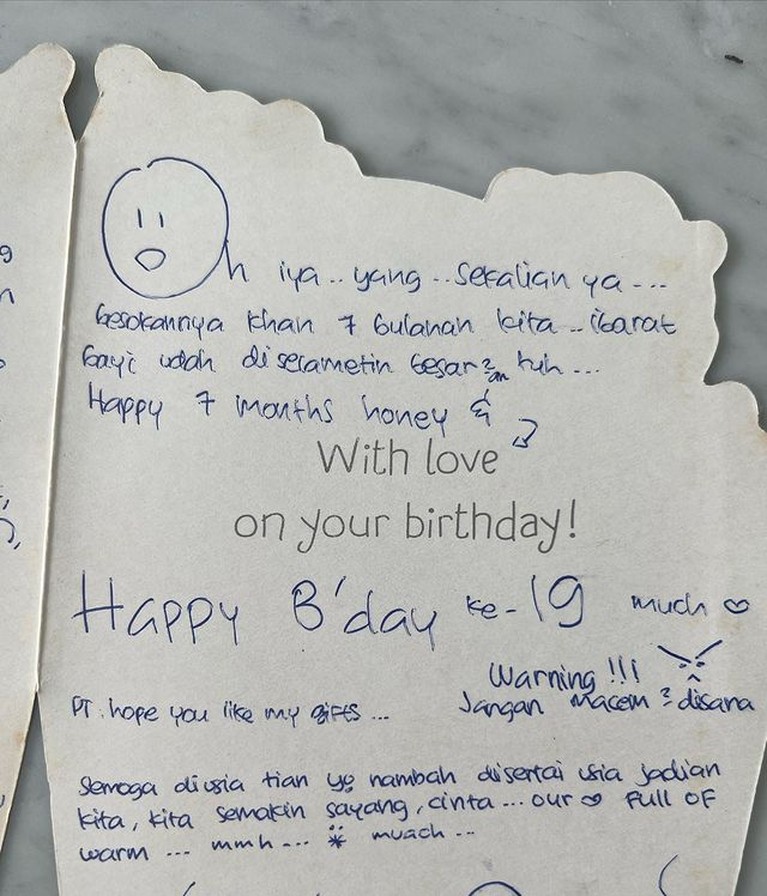 Oh iya .. yang .. sekalian ya ...
besokannya khan 7 bulanan kita .. ibarat
bayi udah diselametin besar2an tuh ...
Happy 7 months honey &
With love
on your birthday!
Happy B'day ke-19 much ♡
Warning !!!
Jangan macem2 disana
PT: hope you like my gifts ...
Semoga diusia tian yg nambah disertai usia jadian
kita, kita semakin sayang, cinta ... our ♡ full of
warm ... mmh ... * muach ..